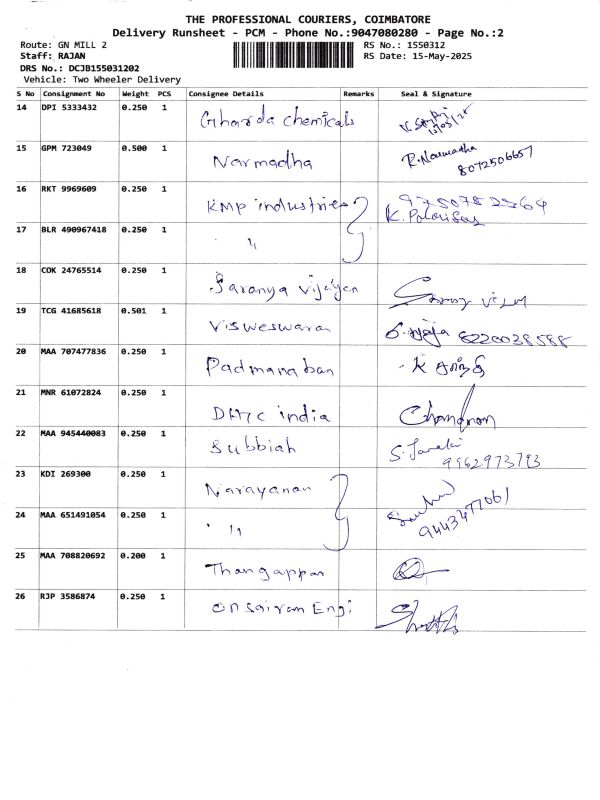 THE PROFESSIONAL COURIERS, COIMBATORE
Delivery Runsheet - PCM - Phone No.:9047080280 - Page No.:2
Route: GN MILL 2 RS No.: 1550312
Staff: RAJAN RS Date: 15-May-2025
DRS No.: DCJB155031202
Vehicle: Two Wheeler Delivery
S No Consignment No Weight PCS Consignee Details Remarks Seal & Signature
14 DPI 5333432 0.250 1 Gharda chemicals
15 GPM 723049 0.500 1 Narmadha R. Narmadha
8072506657
16 RKT 9969609 0.250 1 KMP industries
17 BLR 490967418 0.250 1 "
18 COK 24765514 0.250 1 Saranya Vijayan
19 TCG 41685618 0.501 1 Visweswaran 8220038588
20 MAA 707477836 0.250 1 Padmanaban
21 MNR 61072824 0.250 1 India
22 MAA 945440083 0.250 1 Subbiah S. Janaki
9962973793
23 KDI 269300 0.250 1 Narayanan
24 MAA 651491054 0.250 1 " 9443477061
25 MAA 708820692 0.200 1 Thangappan
26 RJP 3586874 0.250 1 Onsairam Engi